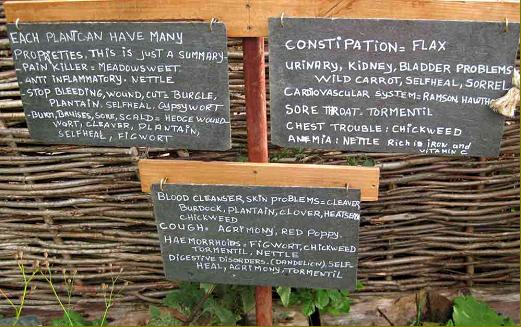 EACH PLANT CAN HAVE MANY
PROPRETIES, THIS IS JUST A SUMMARY
PAIN KILLER = MEADOWSWEET
ANTI INFLAMMATORY: NETTLE
STOP BLEEDING, WOUND, CUT: BURGLE,
PLANTAIN. SELFHEAL, GYPSYWORT
-BURN, BRUISES, SORE, SCALD = HEDGE WOUND
WORT, CLEAVER, PLANTAIN,
SELFHEAL, FIGWORT
CONSTIPATION = FLAX
URINARY, KIDNEY, BLADDER PROBLEMS
WILD CARROT, SELFHEAL, SORREL
CARDIOVASCULAR SYSTEM = RAMSON, HAWTH
SORE THROAT- TORMENTIL
CHEST TROUBLE: CHICKWEED
ANEMIA: NETTLE Rich in iron and
VITAMIN C
BLOOD CLEANSER, SKIN PROBLEMS = CLEAVER
BURDOCK, PLANTAIN, CLOVER,
CHICKWEED
COUGH = AGRIMONY, RED POPPY.
HAEMORRHOIDS = FIGWORT, CHICKWEED
TORMENTIL, NETTLE
DIGESTIVE DISORDERS. (DANDELION), SELF
HEAL, AGRIMONY, TORMENTIL